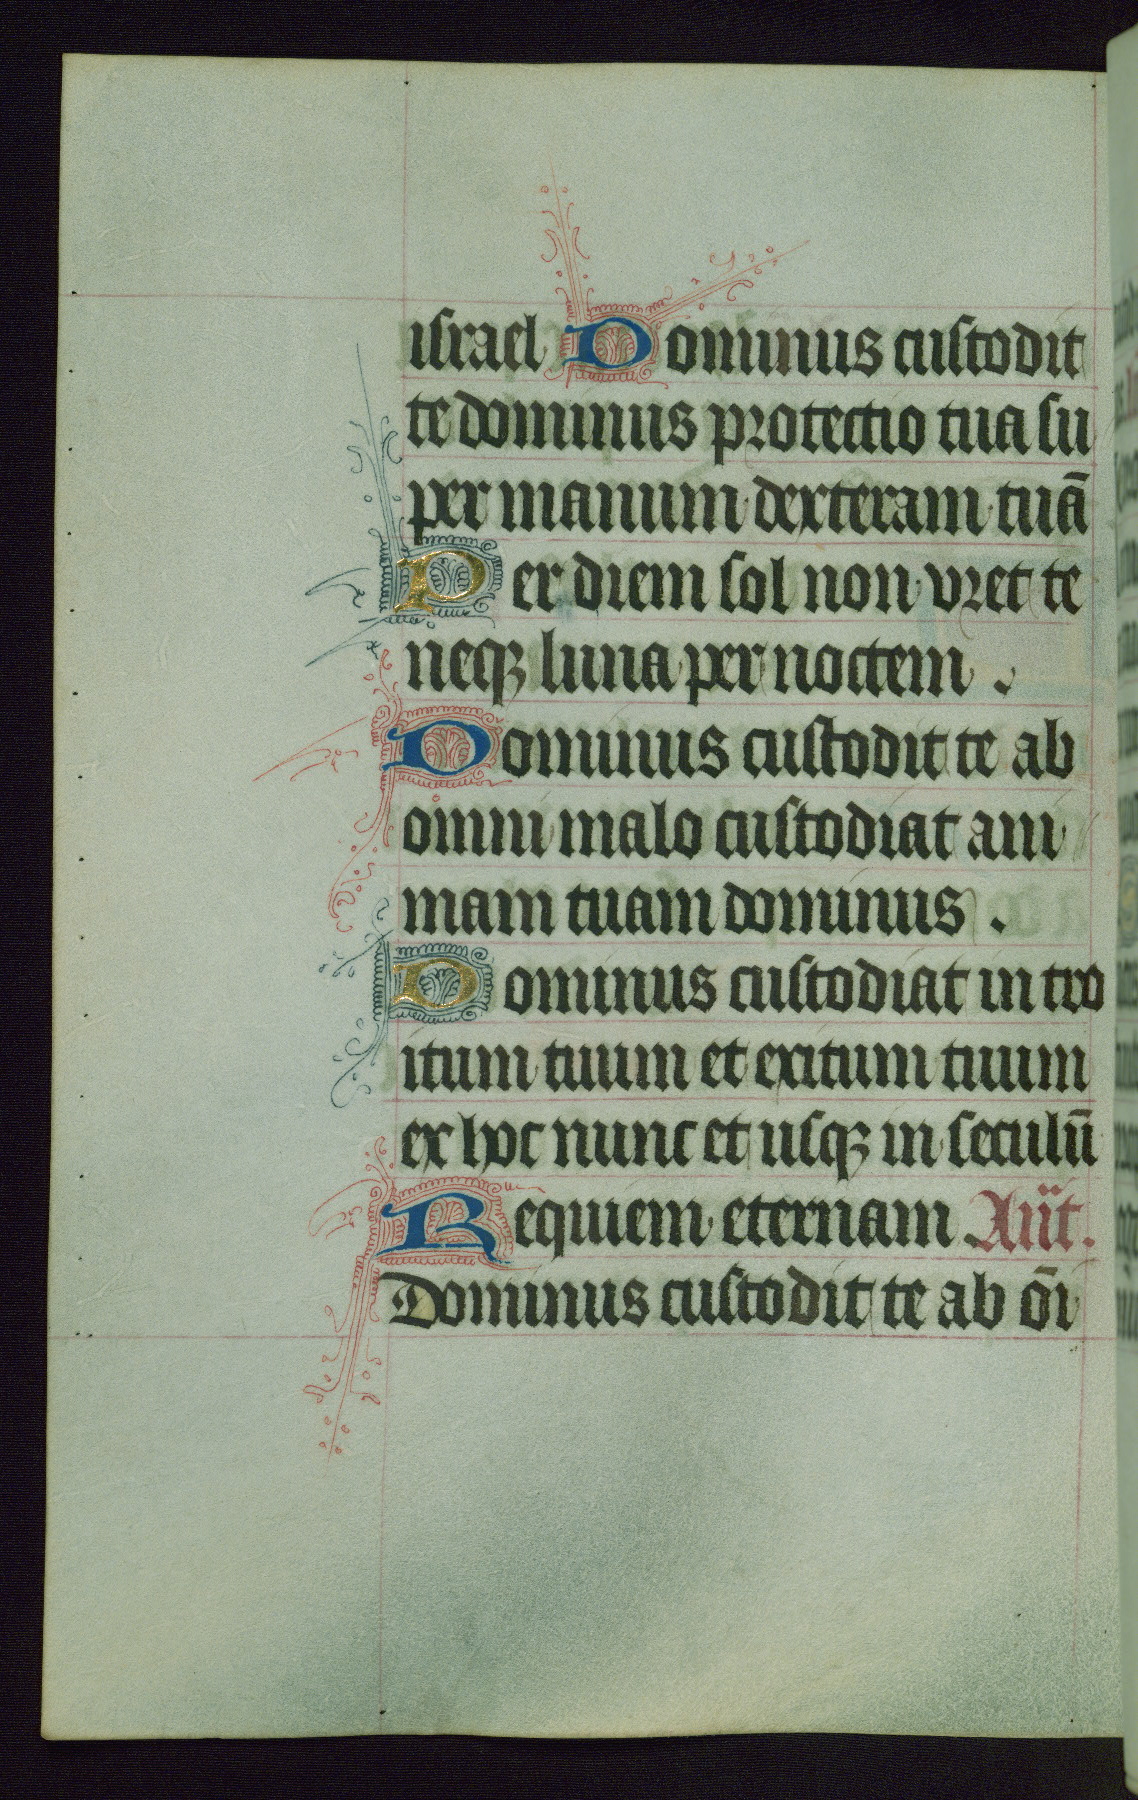 israel Dominus custodit
te dominus protectio tua su
per manum dexteram tuā
Per diem sol non vret te
neqꝫ luna per noctem .
Dominus custodit te ab
omni malo custodiat ani
mam tuam dominus .
Dominus custodiat in tro
itum tuum et exitum tuum
ex hoc nunc et usqꝫ in seculū
Requiem eternam Añt.
Dominus custodit te ab oī